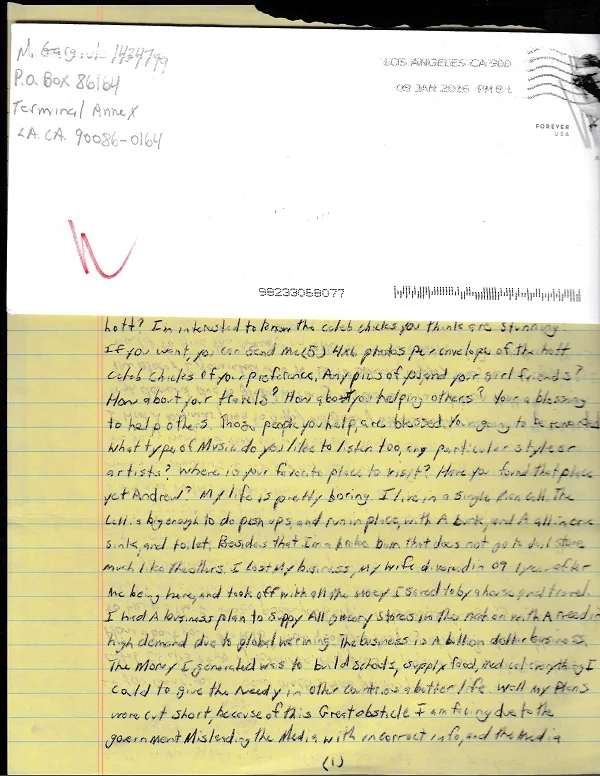 M. Gargiulo
P.O. Box 86164
Terminal Annex
LA. CA. 90086-0164
LOS ANGELES CA 900
08 JAN 2016 PM 8 L
FOREVER
USA
98233058077
hott? Im interested to know the celeb chicks you think are stunning
If you want, you can send me (5) 4x6 photos per envelope of the hott
celeb chicks of your preference. Any pics of you and your girl friends?
How about your travels? How about you helping others? Your a blessing
to help others. Those people you help, are blessed. You going to be rewarded
What type of Music do you like to listen too, any particular style or
artists? Where is your favorite place to visit? Have you found that place
yet Andrew? My life is pretty boring. I live in a single man cell. The
Cell is big enough to do push ups, and run in place, with A bunk, and A all in one
sink, and toilet. Besides that Im a broke bum that does not go to Jail store
much like the others. I lost my business, My wife divorced in 09 1 year after
me being here, and took off with all the money I saved to by a house and travel
I had A business plan to supply All grocery stores in the nation with A need in
high demand due to global warming. The business is A billion dollar business
The Money I generated was to build schools, supply food, medical everything I
could to give the Needy in other countries a better life. Well my Plans
were cut short, because of this Great obsticle I am facing due to the
government Misleading the Media with incorrect info, and the media
(1)